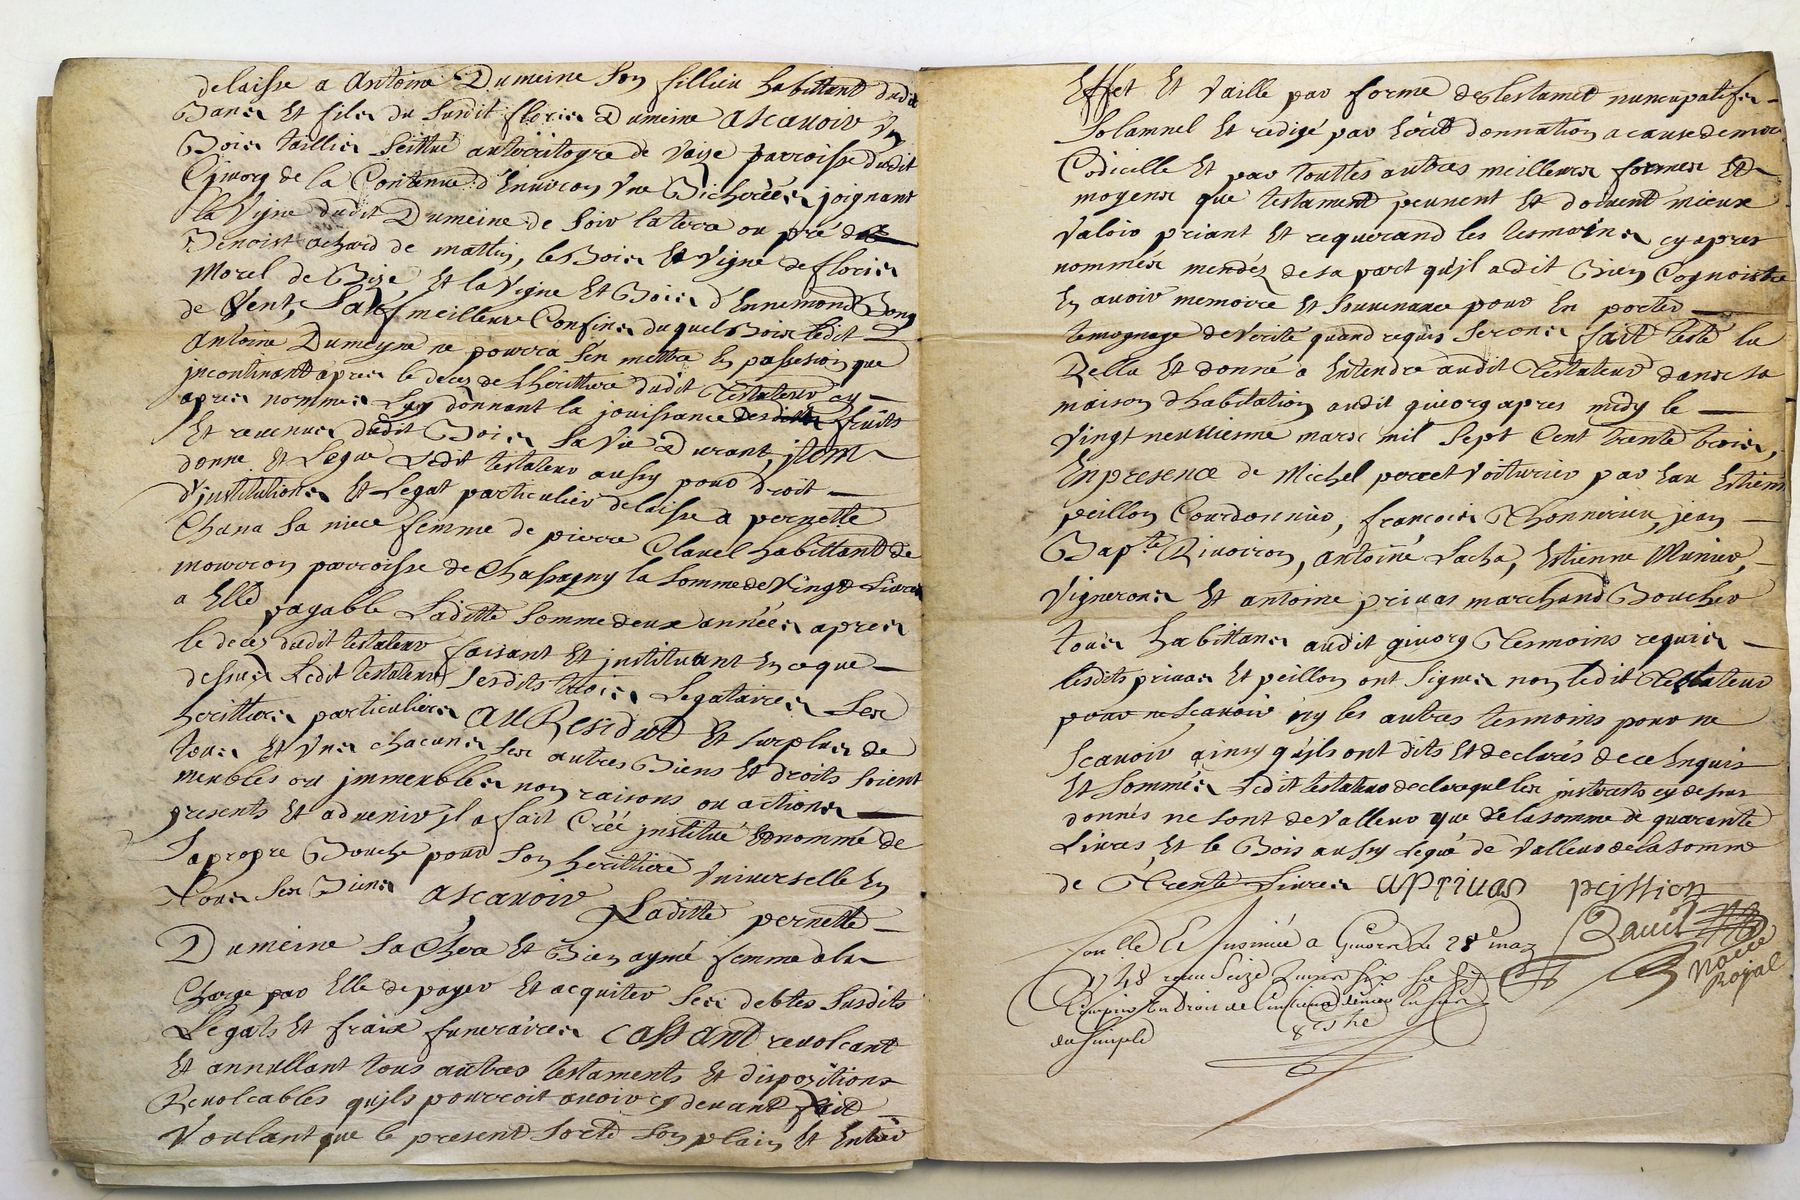 delaisse a Antoine Dumeine son fillieu habittant dudit
Bans et fils du susdit fleuris Dumeine ascavoir un
Bois taillis scittué au territoyre de vaise parroisse dudit
Givorg de la Contenue d'Environ une Bicherée joignant
la vigne dudit Dumeine de soir la terre ou pré de
Benoist achard de mattin, le Bois et vigne de floris
Morel de Bize, et la vigne et Bois d'Ennemond Bong
de vent, sauf meilleurs Confins duquel Bois ledit
Antoine Dumeyne ne pourra s'en mettre en passesion que
jncontinant apres le deces de l'herittiere dudit testateur cy
apres nommée luy donnant la jouissance des fruits
et revenus dudit Bois sa vie Durant, jtem
donne et legue ledit testateur aussy pour droit
d'jnstitution et legat particulier delaisse a pernette
Chana sa niece femme de pierre Clavel habittant de
mourron parroisse de Chassagny la somme de vingt Livres
a Elle payable laditte somme deux années apres
le deces dudit testateur faisant et jnstituant en ce que
dessus ledit testateur sesdits trois legataires ses
herittiers particuliers AU Residut et surplus de
tous et uns chacuns ses autres Biens et droits soient
meubles ou jmmeubles nom raisons ou actions
presents et advenir jl a fait Créé jnstitué et nommé de
sa propre Bouche pour son herittiere universelle en
tous ses Biens ascavoir Laditte pernette
Dumeine sa Chera et Bien aymé femme a la
Charge par Elle de payer et acquiter ses debtes susdits
Legats et fraix funeraires Cassant revolcant
et annullant tous autres testaments et dispozitions
Revolcables qu'jls pourroit avoir cy devant fait
voulant que le present sorte son plain et entier
Effet et vaille par forme de testament nuncupatif
solamnel et redigé par Ecrit donnation a cause de mort
Codicille et par touttes autres meilleurs formes et
moyens que testament peuvent et doivent mieux
valoir priant et requerand les tesmoins cy apres
nommés mendés de sa part qu'jl a dit Bien Cognoistre
En avoir memoire et souvenance pour En porter
temognage de verite quand requis seront fait leste lu
Rellu et donné a Entendre audit testateur dans sa
maison d'habitation audit givorg apres midy le
vingt neufviesme mars mil sept Cent trente trois,
En presence de Michel perret voiturier par Eau Estienne
peillon Courdonnier, francois Thonnerieu, jean
Bap.te Rivoiron, Antoine Lacha, Estienne Munier,
vignerons et antoine privas marchand Boucher
tous habittans audit givorg tesmoins requis
lesdits privas et peillon ont signés non ledit testateur
pour ne scavoir ny les autres tesmoins pour ne
scavoir ainsy qu'jls ont dits et declarés de ce Enquis
et sommés ledit testateur declare que les justrests cy dessus
donnés ne sont de valleur que de la somme de quarante
Livres, et le Bois aussy legué de valleur de la somme
de Trente Livres aprivas peission
David
Noere
Royal
Con.llé et Insinué a Givors le 28e may
1748 receu seize Livres six s.
Compris un droit de
au simple